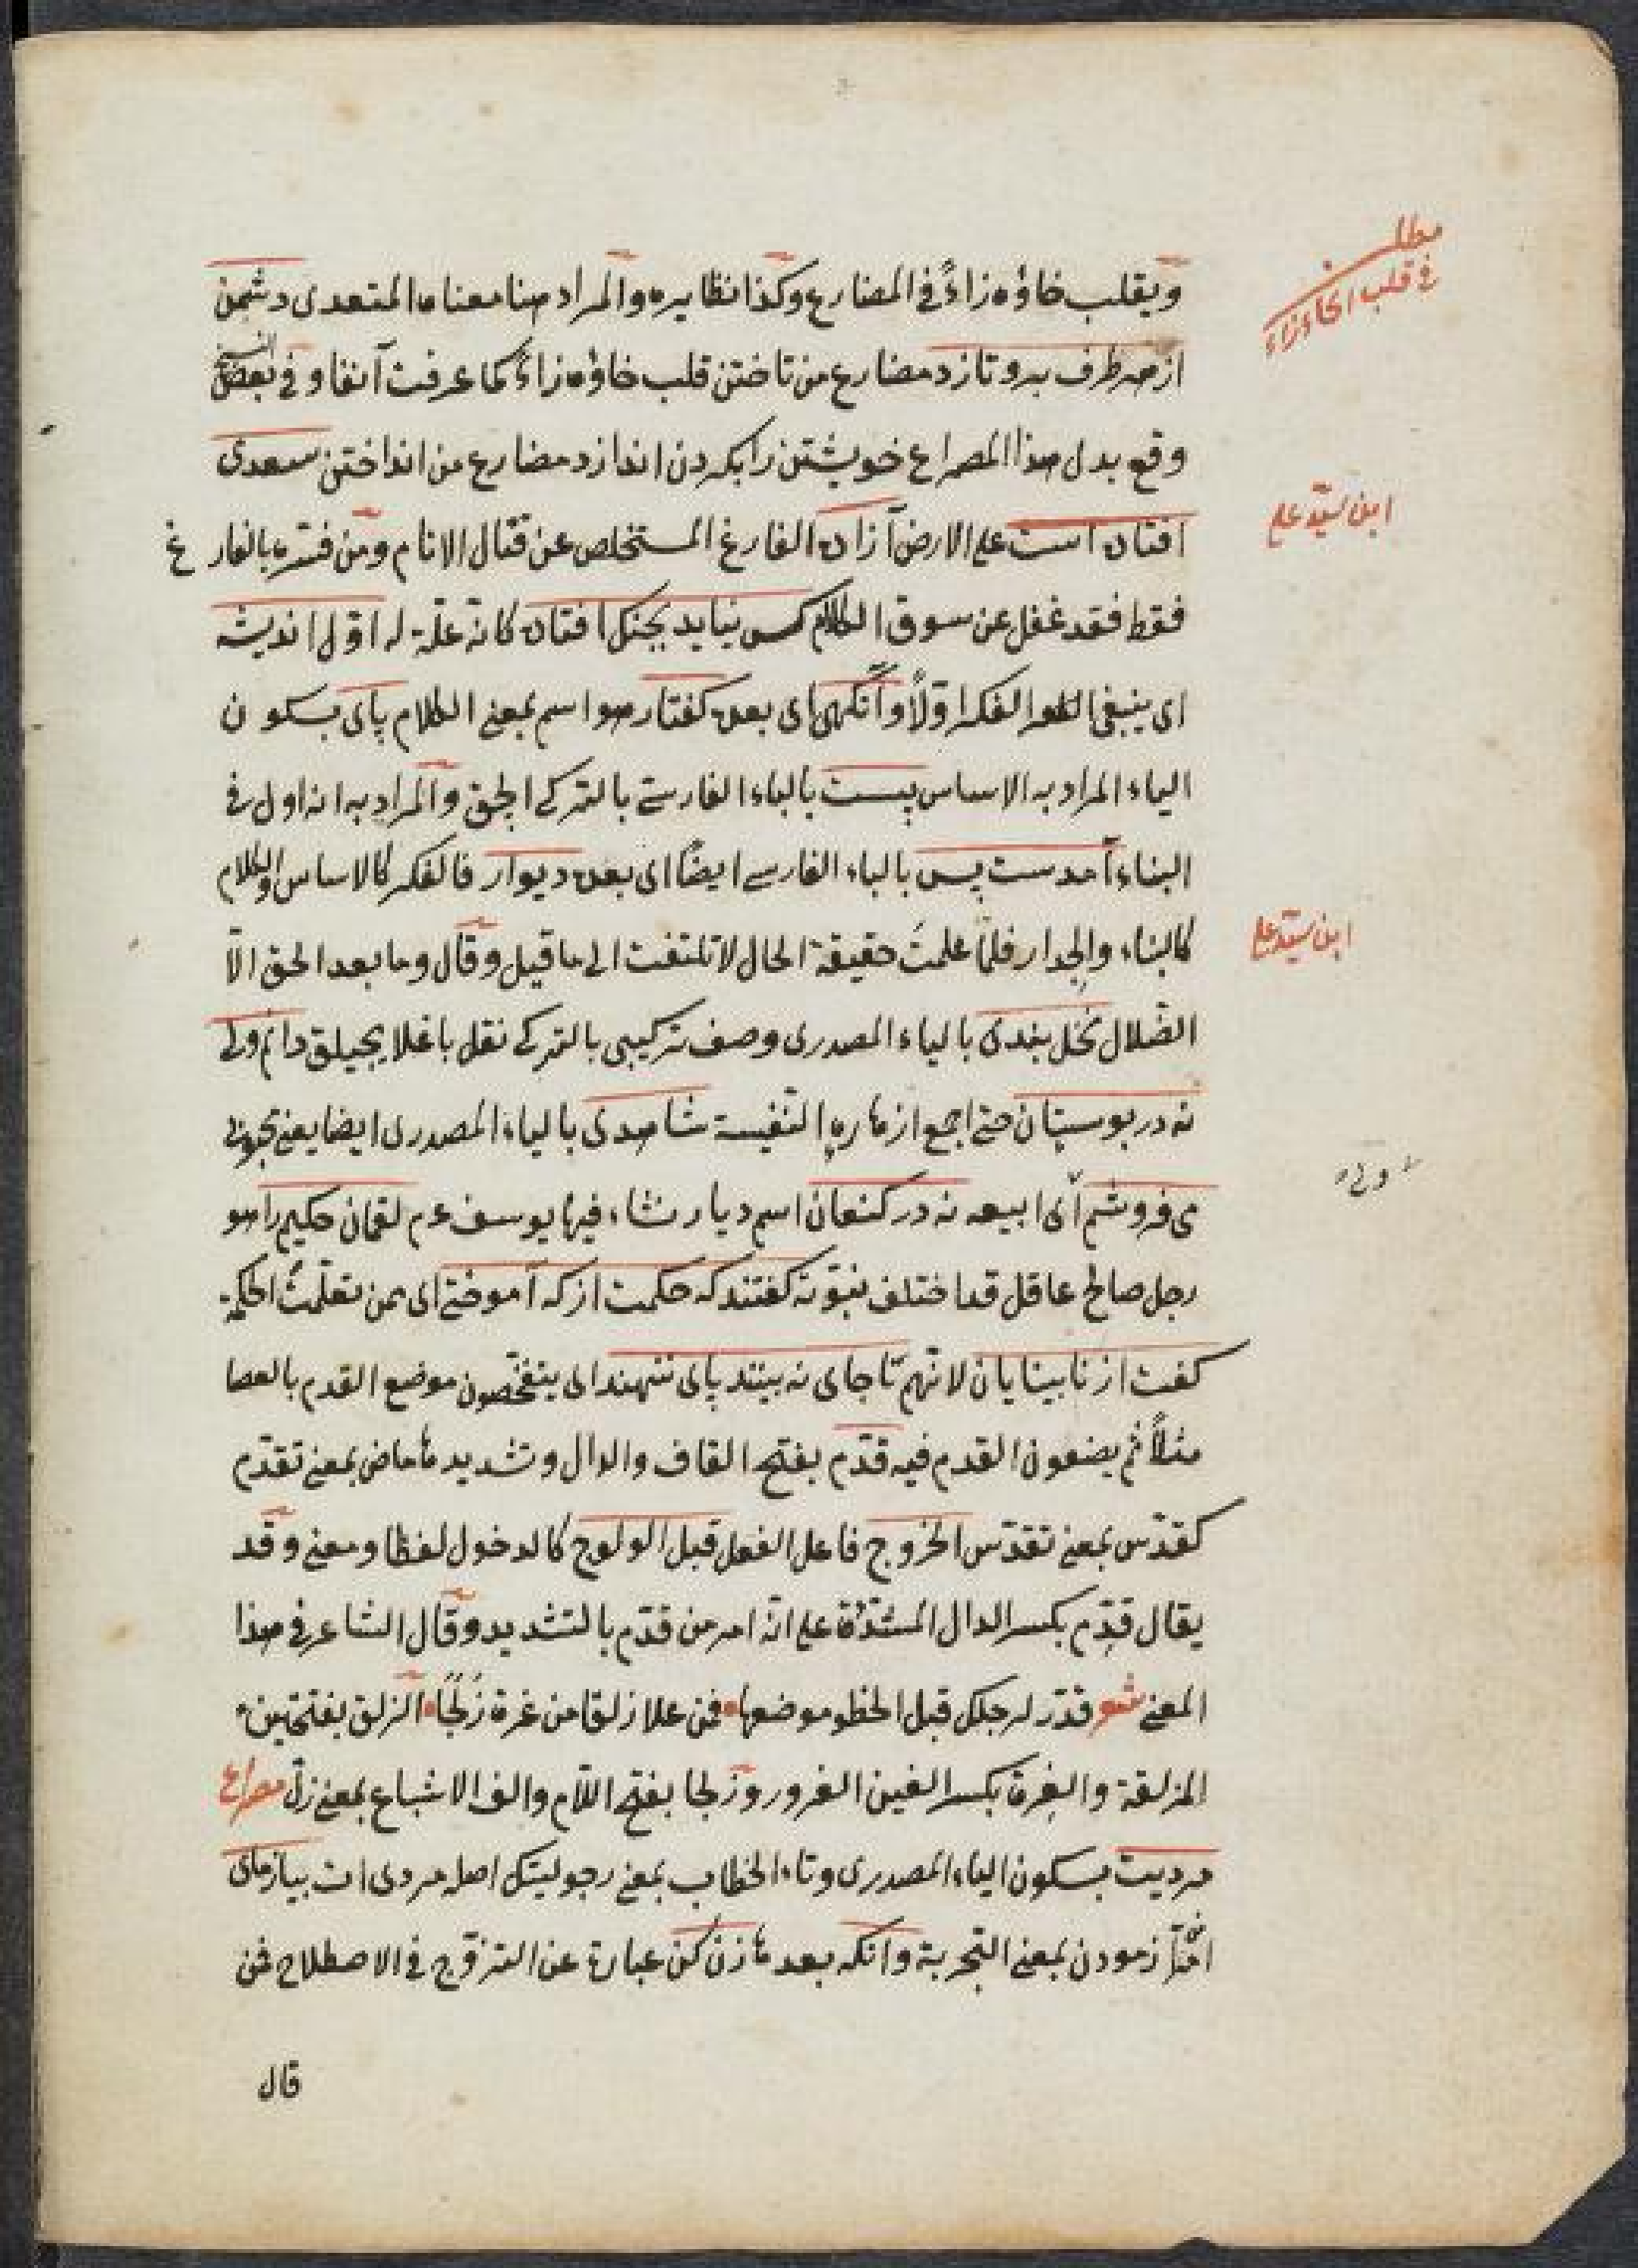 مطلب
في قلب الخاء زاء
ويقلب خاؤه زاءً في المضارع وكذا نظايره والمراد هنا معناه المتعدى دشمن
از هر طرف برو تازد مضارع من تاختن قلب خاؤه زاءً كما عرفت آنفا وفي بعض النسخ
وقع بدل هذا المصراع خويشتن را بكردن اندازد مضارع من انداختن سعدى
افتاده است على الارض آزاده الفارغ المستخلص عن قتال الانام ومن فسّره بالفارغ
ابن سيّد علي
فقط فقد غفل عن سوق الكلام كس نيايد بجنك افتاده كانه علّة له اوّل انديشه
اى ينبغي الفكر اوّلاً وآنكهى اى بعده كفتار هو اسم بمعنى الكلام پاى بسكون
الياء المراد به الاساس پيست بالباء الفارسي بالتركي الچق والمراد به انه اول في
البناء آمدست پس بالباء الفارسي ايضًا اى بعده ديوار فالفكر كالاساس والكلام
كالبناء والجدار فلمّا علمتَ حقيقة الحال لا تلتفت الى ما قيل وقال وما بعد الحق الّا
ابن سيّد علي
الضلال نخل بندى بالياء المصدرى وصف تركيبى بالتركي نقل باغلايجيلق دانم ولى
نه در بوستان حتى اجمع ازهاره النفيسة شاهدى بالياء المصدرى ايضا يعنى محبوبى
ولى
مى فروشم اى ابيعه نه در كنعان اسم ديار نشاء فيها يوسف عم لقمان حكيم را هو
رجل صالح عاقل قد اختلف نبوّته كفتند كه حكمت از كه آموختى اى ممن تعلّمت الحكمة
كفت از نابينايان لانّهم تا جاى نه بينند پاى ننهند اى يتفحّصون موضع القدم بالعصا
مثلاً ثم يضعون القدم فيه قدّم بفتح القاف والدال وتشديدها ماض بمعنى تقدّم
كقدّس بمعنى تقدّس الخروج فاعل الفعل قبل الولوج كالدخول لفظا ومعنى وقد
يقال قدّم بكسر الدال المشدّدة على انّه امر من قدّم بالتشديد وقال الشاعر في هذا
المعنى شعر قدّر لرجلك قبل الخطو موضعها فمن علا زلقا من غرة زَلَجًا الزلق بفتحتين
المزلقة والغرة بكسر الغين الغرور وزلجا بفتح اللّام والف الاشباع بمعنى زلّ مصراع
مرديت بسكون الياء المصدرى وتاء الخطاب بمعنى رجوليتك اصله مردى ات بيازماى
آزمودن بمعنى التجربة وانكه بعدها زن كن عبارة عن التزوّج في الاصطلاح فمن
قال